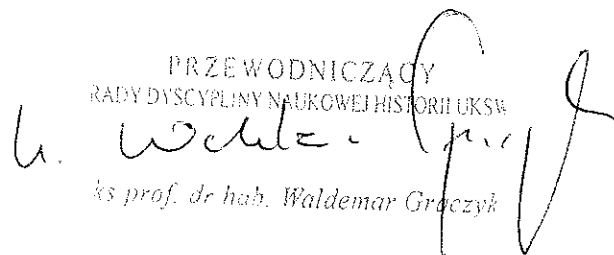 PRZEWODNICZĄCY
RADY DYSCYPLINY NAUKOWEJ HISTORII UKSW
ks prof. dr hab. Waldemar Graczyk